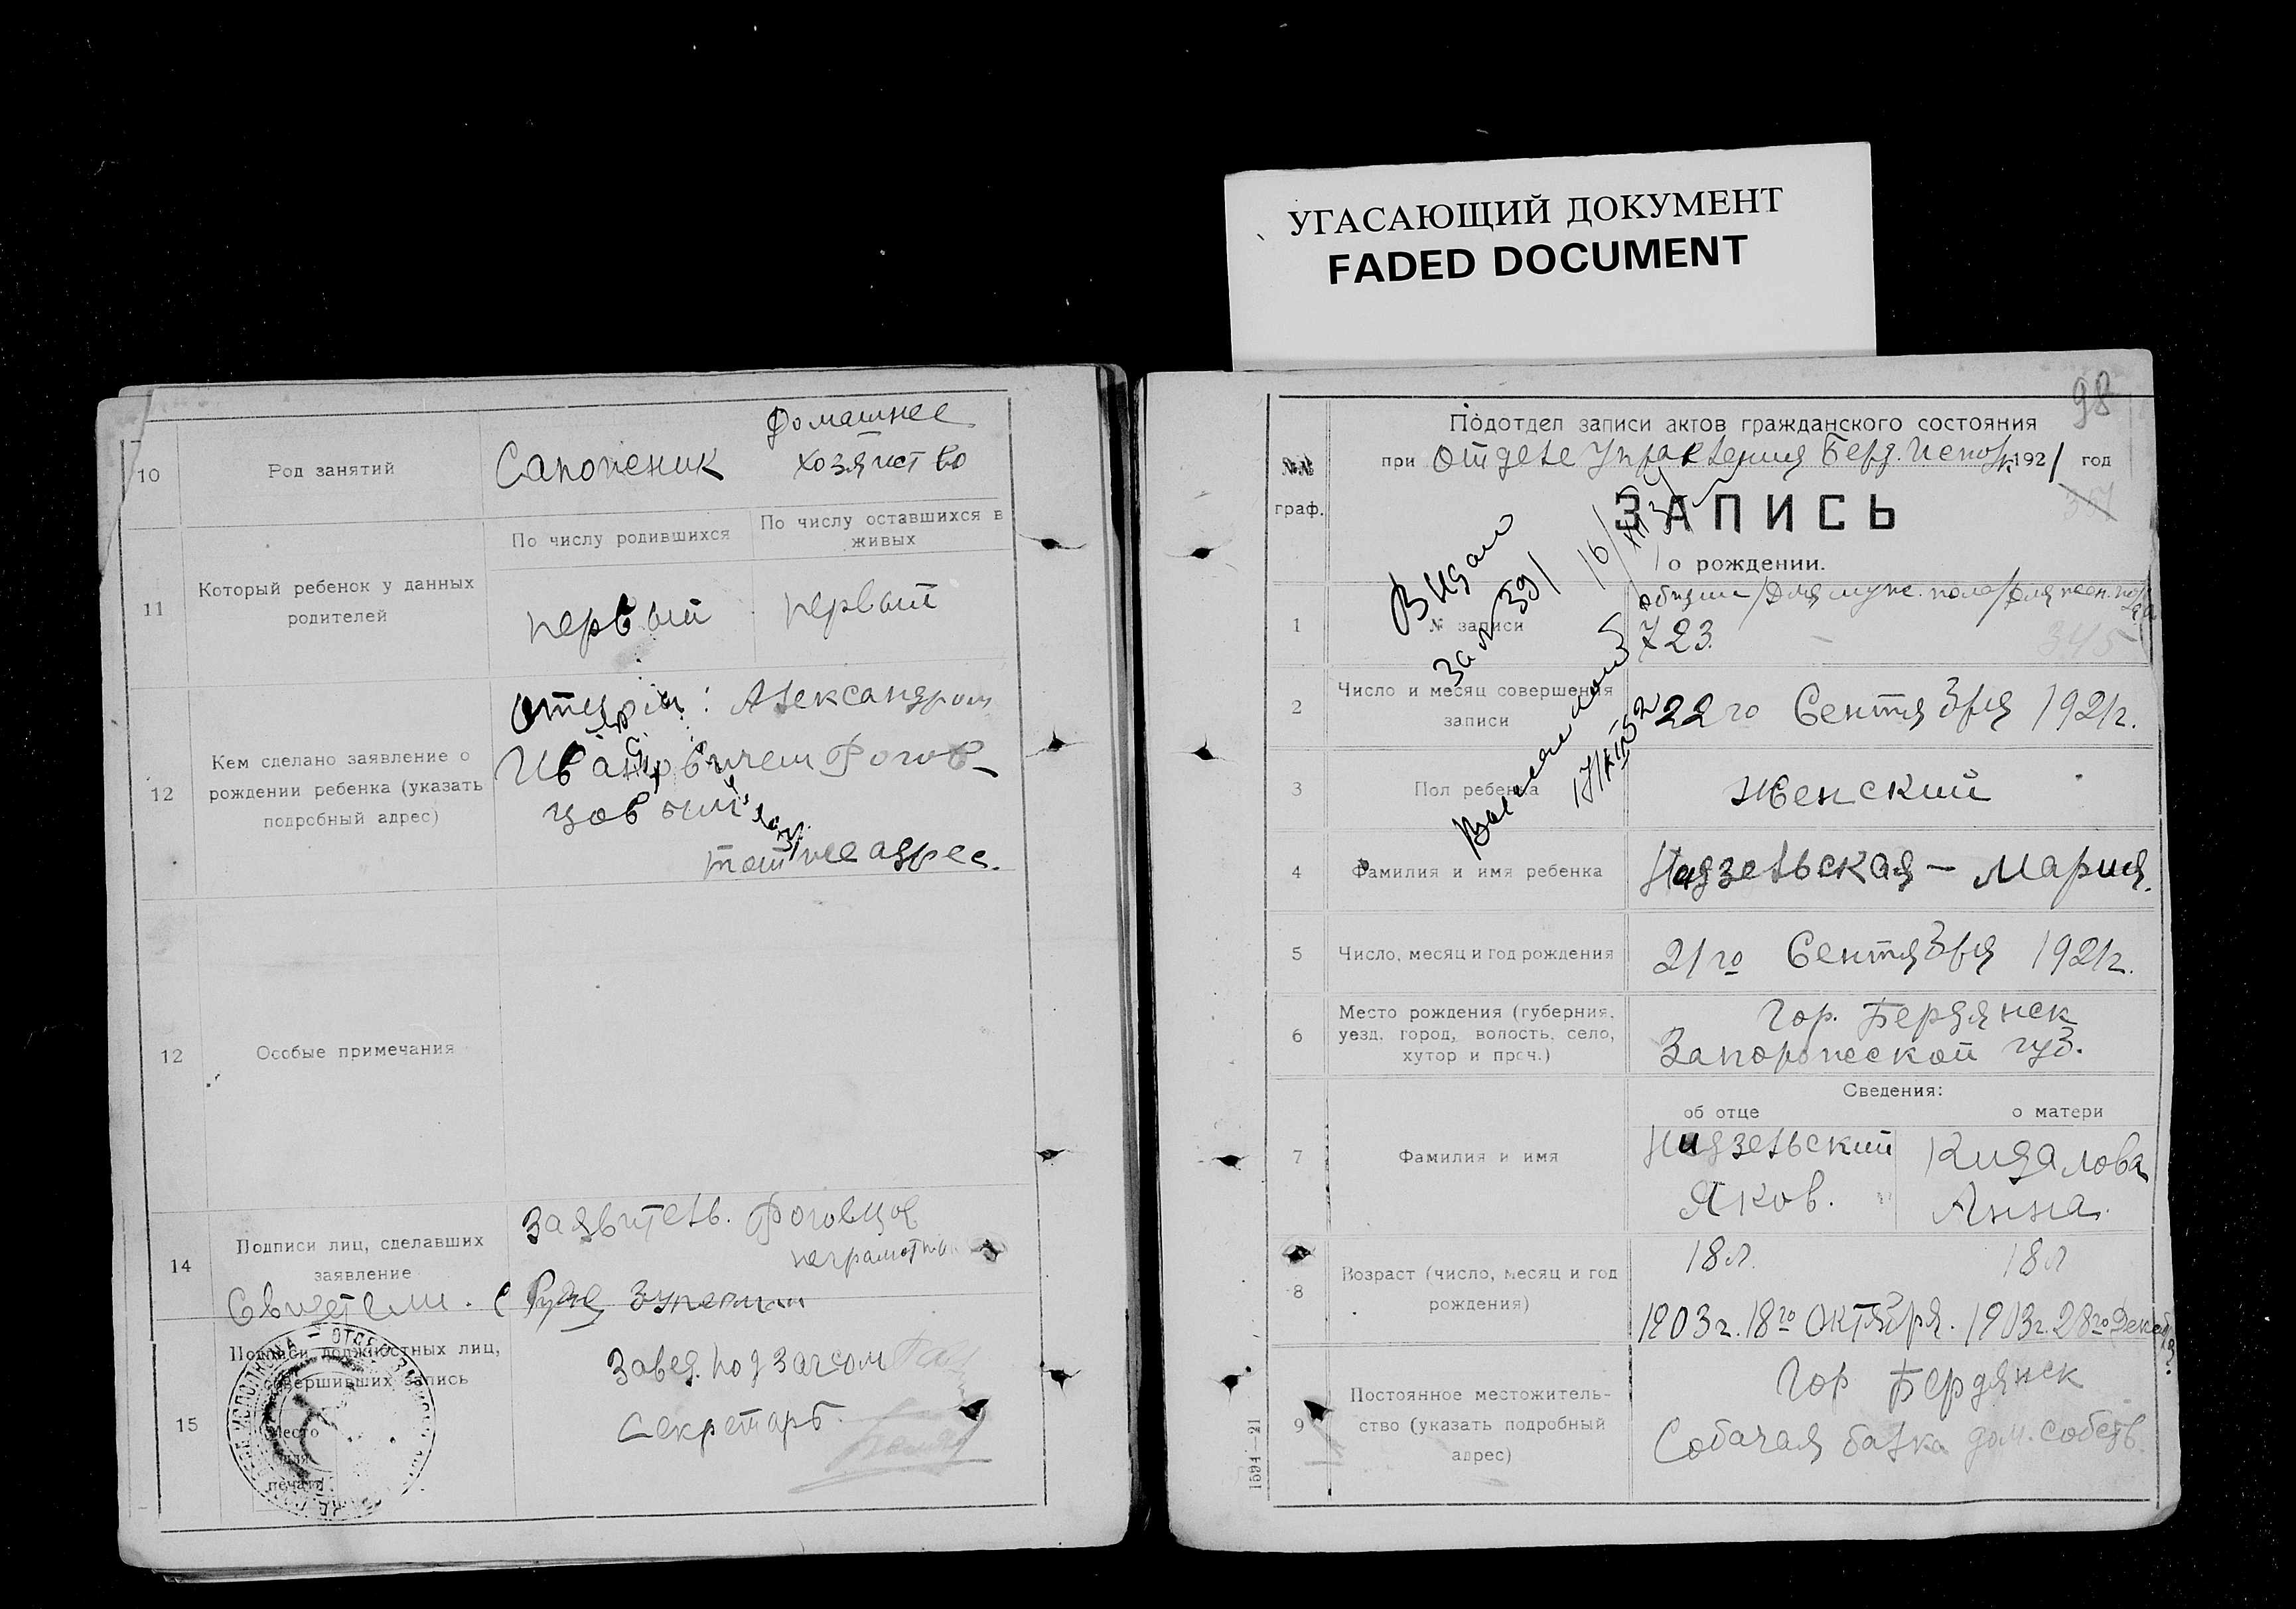 УГАСАЮЩИЙ ДОКУМЕНТ
FADED DOCUMENT
10
Род занятий
Сапожник
Домашнее
хозяйство
11
Который ребенок у данных
родителей
По числу родившихся
По числу оставшихся в
живых
первый
первый
12
Кем сделано заявление о
рождении ребенка (указать
подробный адрес)
отцом: Александром
Ивановичем Рогов-
цовым
тот же адрес.
12
Особые примечания
14
Подписи лиц, сделавших
заявление
Заявитель. Роговцов
неграмотный
Свидетели.
15
Подписи должностных лиц,
совершивших запись
Место
для
печати
Завед. подзагсом
Секретарь
98
№№
граф.
Подотдел записи актов гражданского состояния
при Отделе Управления Берд. Исполк 1921 год
351
ЗАПИСЬ
о рождении.
Видано
за № 391
1
№ записи
общий/для муж. пола/для жен. пола
723.
–
345
2
Число и месяц совершения
записи
22го Сентября 1921г.
3
Пол ребенка
Женский
4
Фамилия и имя ребенка
Надзельская – Мария.
5
Число, месяц и год рождения
21го Сентября 1921г.
6
Место рождения (губерния,
уезд, город, волость, село,
хутор и проч.)
Гор. Бердянск
Запорожской губ.
Сведения:
об отце
о матери
7
Фамилия и имя
Надзельский
Яков.
Кидалова
Анна.
8
Возраст (число, месяц и год
рождения)
18л.
18л
1903г. 18го Октября.
1903г. 28го Декабря.
9
Постоянное местожитель-
ство (указать подробный
адрес)
Гор Бердянск
Собачая балка дом. собств.
1594—21